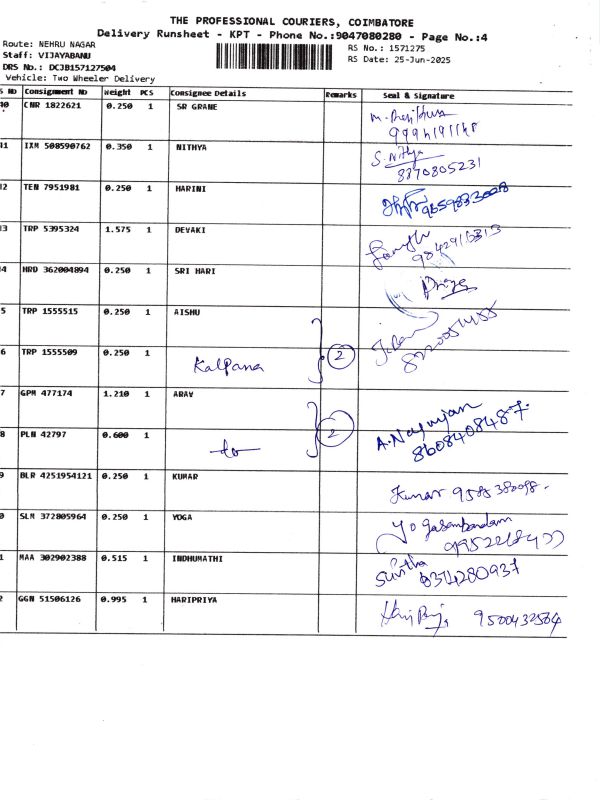 THE PROFESSIONAL COURIERS, COIMBATORE
Delivery Runsheet - KPT - Phone No.:9047080280 - Page No.:4
Route: NEHRU NAGAR RS No.: 1571275
Staff: VIJAYABANU RS Date: 25-Jun-2025
DRS No.: DCJB157127504
Vehicle: Two Wheeler Delivery
S NO Consignment NO Weight PCS Consignee Details Remarks Seal & Signature
40 CNR 1822621 0.250 1 SR GRANE
11 IXM 508590762 0.350 1 NITHYA S. Nithya
8370805231
12 TEN 7951981 0.250 1 HARINI 9659833008
13 TRP 5395324 1.575 1 DEVAKI
14 HRD 362004894 0.250 1 SRI HARI
5 TRP 1555515 0.250 1 AISHU
6 TRP 1555509 0.250 1 Kalpana 2
7 GPM 477174 1.210 1 ARAV
8 PLN 42797 0.600 1 to 2 8608408487.
9 BLR 4251954121 0.250 1 KUMAR Kumar
0 SLM 372805964 0.250 1 YOGA Yogasambandam
1 MAA 302902388 0.515 1 INDHUMATHI
8374280937
2 GGN 51506126 0.995 1 HARIPRIYA 9500432564